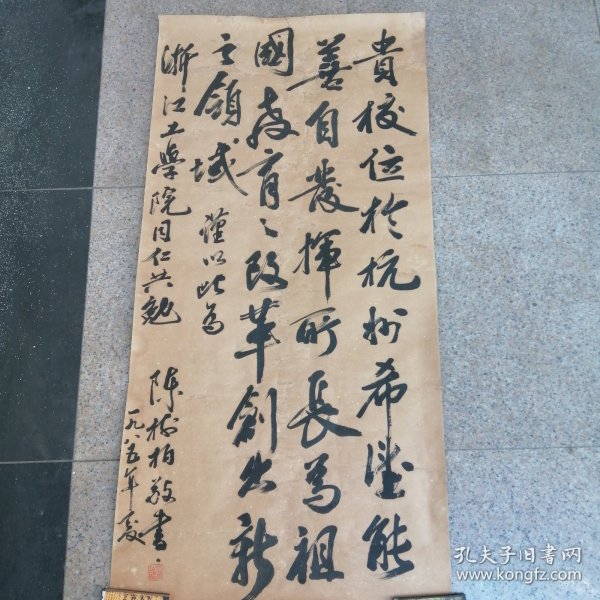 貴校位於杭州希望能
善自發揮所長為祖
國教育之改革創出新
之領域
謹以此為
浙江工學院同仁共勉
陳樹柏敬書
一九八五年夏
孔夫子旧书网
www.kongfz.com